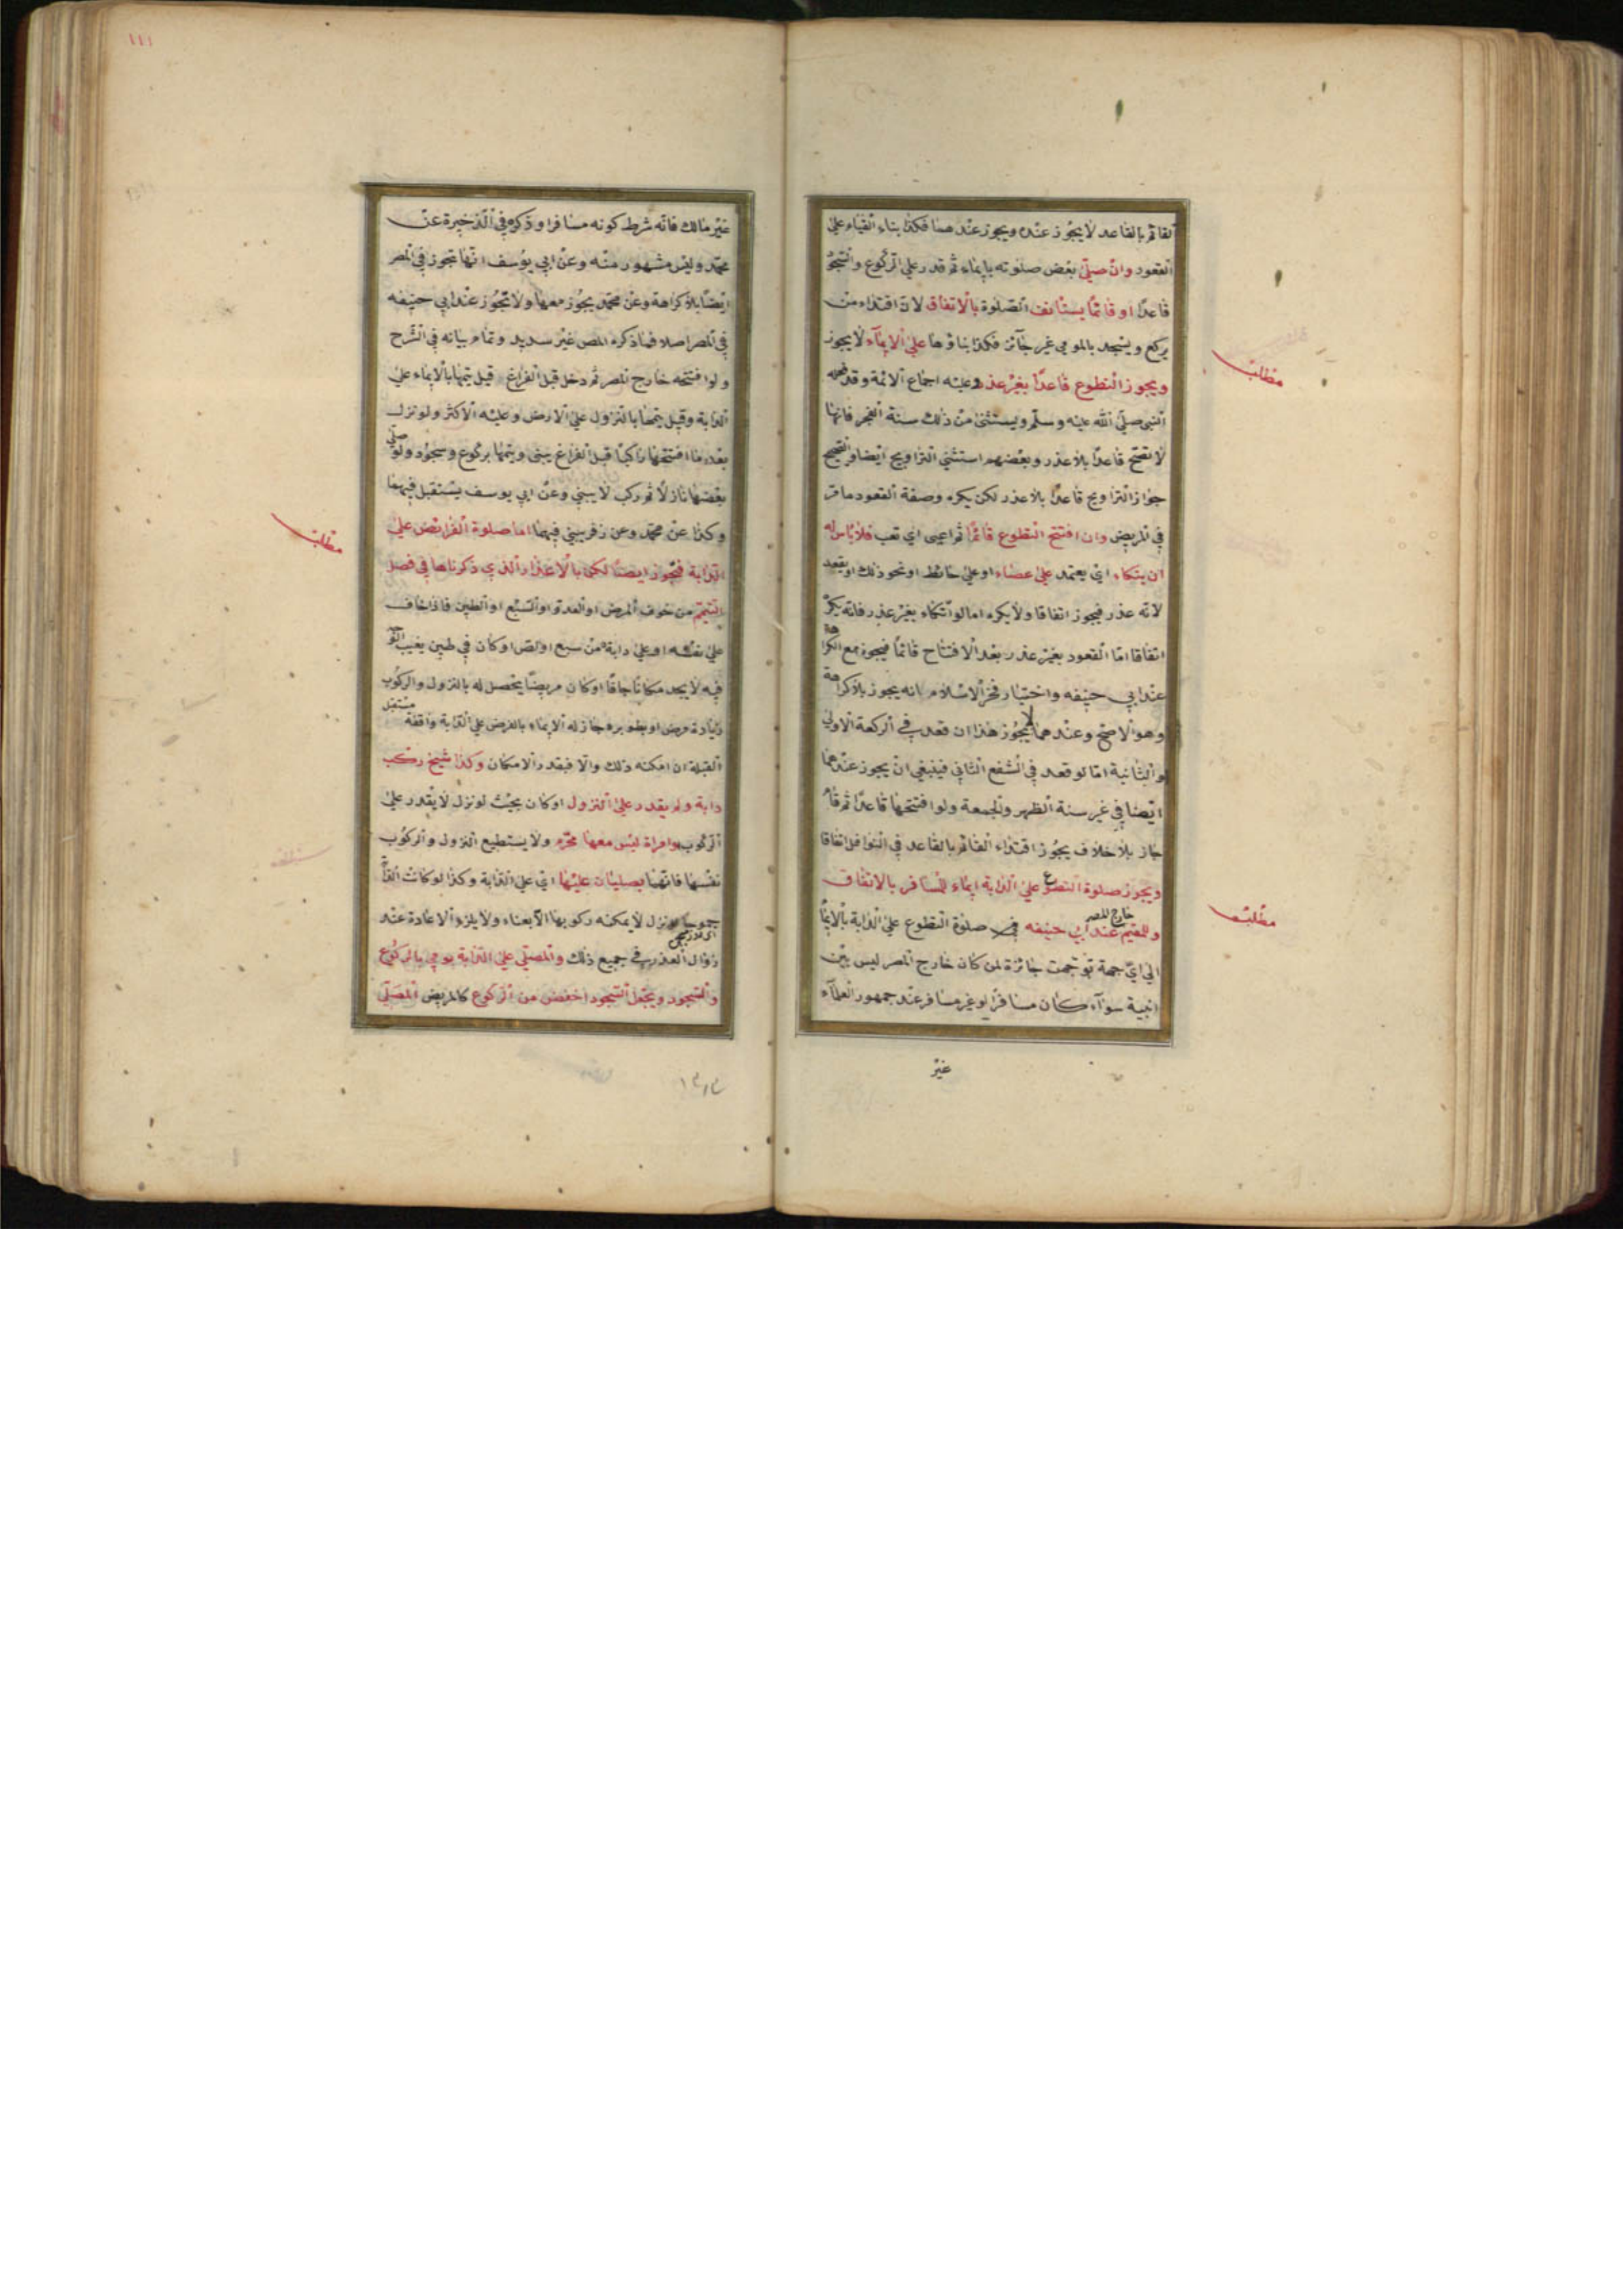 القائم بالقاعد لا يجوز عنده ويجوز عندهما فكذا بناء القيام على
القعود وان صلى بعض صلوته بايماء ثم قدر على الركوع والسجو
قاعدا او قائما يستأنف الصلوة بالاتفاق لان اقتداء من
يركع ويسجد بالمومي غير جائز فكذا بناؤها على الايماء لا يجوز
مطلب
ويجوز التطوع قاعدا بغير عذر وعليه اجماع الائمة وقد فعله
النبي صلى الله عليه وسلم ويستثنى من ذلك سنة الفجر فانها
لا تصح قاعدا بلا عذر وبعضهم استثنى التراويح ايضا والصحيح
جواز التراويح قاعدا بلا عذر لكن يكره وصفة القعود ما مر
في المريض وان افتتح التطوع قائما ثم اعيى اي تعب فلا بأس له
ان يتكاء اي يعتمد على عصاء او على حائط او نحو ذلك او يقعد
لانه عذر فيجوز اتفاقا ولا يكره اما لو اتكاء بغير عذر فانه يكره
اتفاقا اما القعود بغير عذر بعد الافتتاح قائما فيجوز مع الكراهة
عند ابي حنيفه واختيار فخر الاسلام انه يجوز بلا كراهة
وهو الاصح وعندهما لا يجوز هذا ان قعد في الركعة الاولى
والثانية اما لو قعد في الشفع الثاني فينبغي ان يجوز عندهما
ايضا في غير سنة الظهر والجمعة ولو افتتحها قاعدا ثم قام
جاز بلا خلاف يجوز اقتداء القائم بالقاعد في النوافل اتفاقا
ويجوز صلوة التطوع على الدابة ايماء للمسافر بالاتفاق
مطلب
وللمقيم خارج المصر عند ابي حنيفه في صلوة التطوع على الدابة بالايما
الى اي جهة توجهت جائزة لمن كان خارج المصر ليس بين
ابنية سواء كان مسافرا او غير مسافر عند جمهور العلماء
غير
١١١
غير مالك فانه شرط كونه مسافرا وذكره في الذخيرة عن
محمد وليس مشهور منه وعن ابي يوسف انها تجوز في المصر
ايضا بلا كراهة وعن محمد يجوز معها ولا تجوز عند ابي حنيفه
في المصر اصلا فما ذكره المص غير سديد وتمام بيانه في الشرح
ولو افتتحه خارج المصر ثم دخل قبل الفراغ قيل يتمها بالايماء على
الدابة وقيل يتمها بالنزول على الارض وعليه الاكثر ولو نزل
بعد ما افتتحها راكبا قبل الفراغ يبنى ويتمها بركوع وسجود ولو صلى
بعضها نازلا ثم ركب لا يبني وعن ابي يوسف يستقبل فيهما
مطلب
وكذا عن محمد وعن زفر يبني فيهما اما صلوة الفرائض على
الدابة فيجوز ايضا لكن بالاعذار الذي ذكرناها في فصل
التيمم من خوف المرض او العدو او السبع او الطين فاذا خاف
على نفسه او على دابة من سبع او لص او كان في طين يغيب الوجه
فيه لا يجد مكانا جافا او كان مريضا يحصل له بالنزول والركوب
زيادة مرض او بطوء برء جاز له الايماء بالفرض على الدابة واقفة مستقبل
القبلة ان امكنه ذلك والا فبقدر الامكان وكذا شيخ ركب
دابة ولم يقدر على النزول او كان بحيث لو نزل لا يقدر على
الركوب او امراة ليس معها محرم ولا يستطيع النزول والركوب
نفسها فانهما يصليان عليها اي على الدابة وكذا لو كانت الدابة
جموحا لو نزل لا يمكنه ركوبها الا بعناء ولا يلزم الاعادة عند
زوال العذر في جميع ذلك والمصلي على الدابة يومي بالركوع
والسجود ويجعل السجود اخفض من الركوع كالمريض المصلي